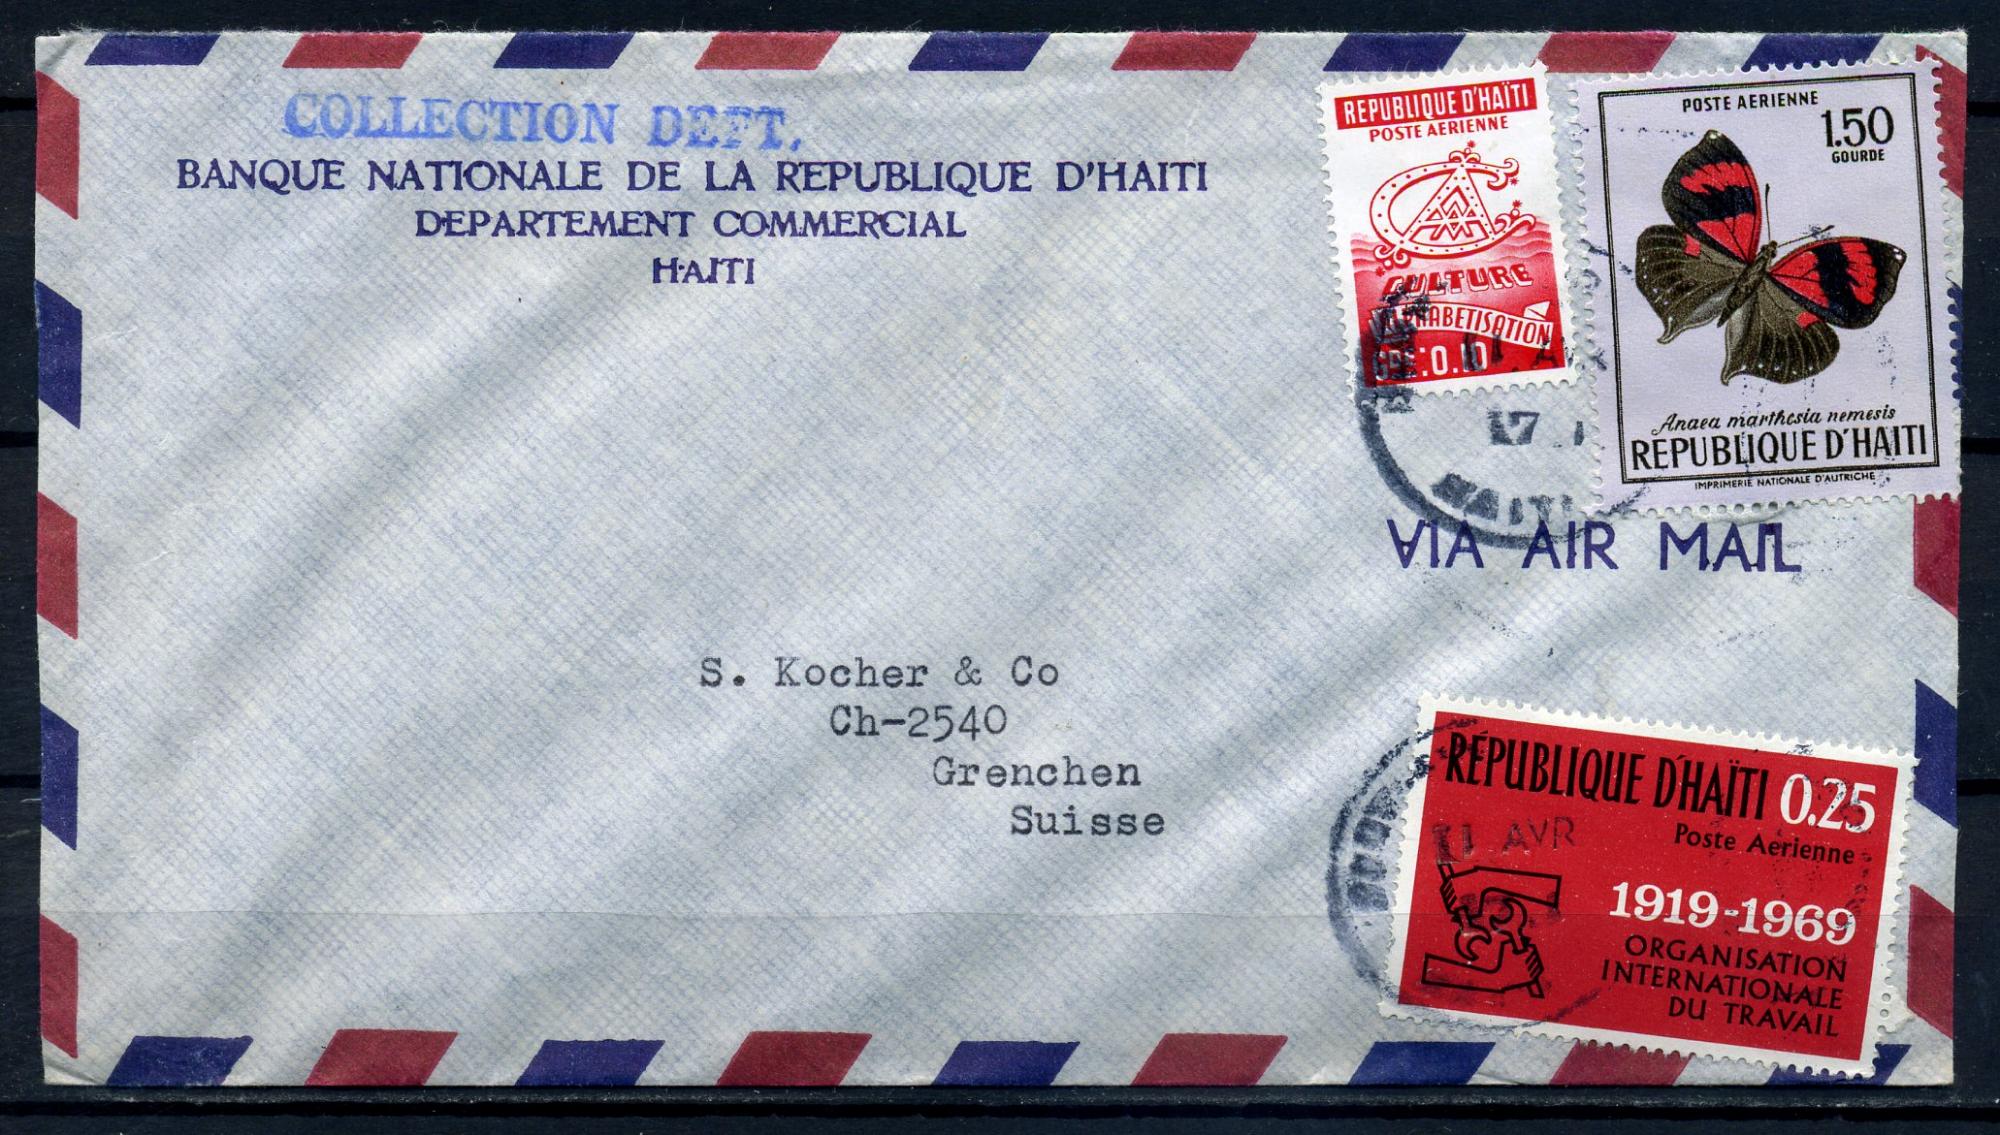 COLLECTION DEPT.
BANQUE NATIONALE DE LA REPUBLIQUE D'HAITI
DEPARTEMENT COMMERCIAL
HAITI
REPUBLIQUE D'HAÏTI
POSTE AERIENNE
CULTURE
ALPHABETISATION
GDE:0.10
POSTE AERIENNE
1.50
GOURDE
Anaea marthesia nemesis
REPUBLIQUE D'HAITI
IMPRIMERIE NATIONALE D'AUTRICHE
11 AVR
17
HAITI
VIA AIR MAIL
S. Kocher & Co
Ch-2540
Grenchen
Suisse
RÉPUBLIQUE D'HAÏTI 0.25
Poste Aérienne
11 AVR
1919-1969
ORGANISATION
INTERNATIONALE
DU TRAVAIL